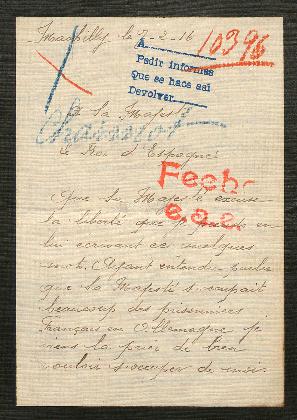 Marbilly le 7-2-16
10396
A
Pedir informes
Que se hace así
Devolver
A sa Majesté
Chaissot
Le Roi d'Espagne
Fech
e.o.e.
Que Sa Majesté excuse
la liberté que je prends en
lui écrivant ce quelques
mots. Ayant entendu parler
que Sa Majesté s'occupait
beaucoup des prisonniers
Français en Allemagne je
viens la prier de bien
vouloir s'occuper de mon